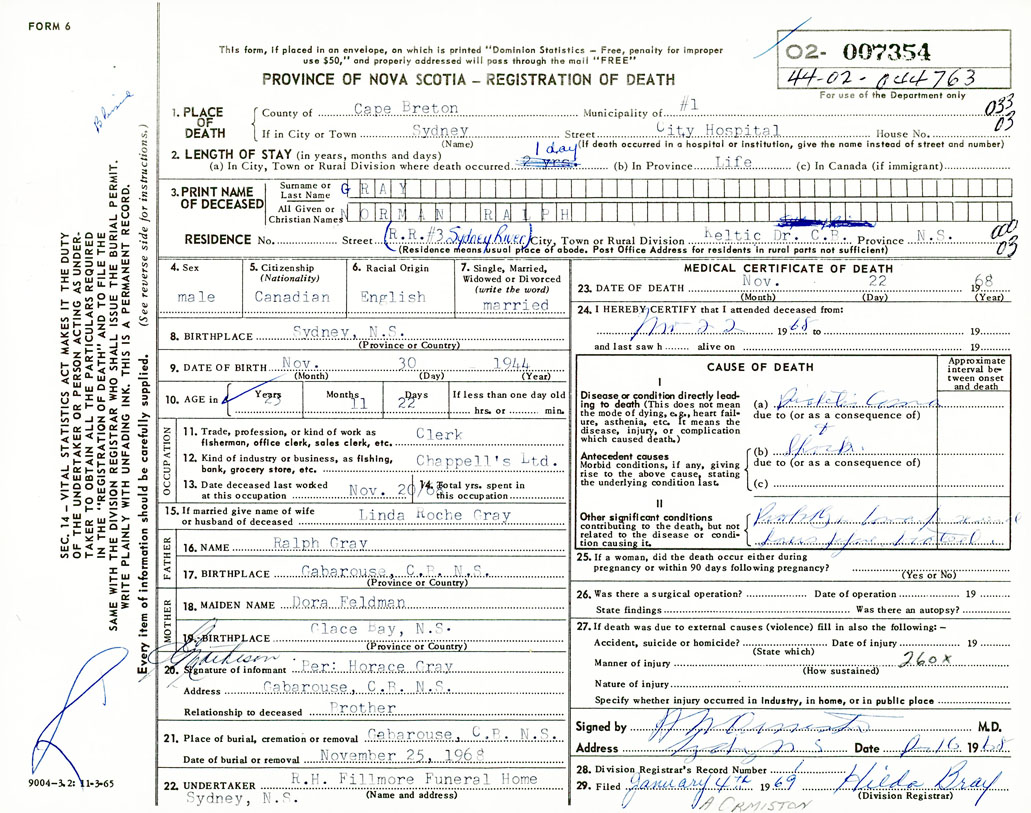 FORM 6
This form, if placed in an envelope, on which is printed "Dominion Statistics – Free, penalty for improper
use $50," and properly addressed will pass through the mail "FREE"
PROVINCE OF NOVA SCOTIA – REGISTRATION OF DEATH
02- 007354
44-02-044763
For use of the Department only
SEC. 14 – VITAL STATISTICS ACT MAKES IT THE DUTY
OF THE UNDERTAKER OR PERSON ACTING AS UNDER-
TAKER TO OBTAIN ALL THE PARTICULARS REQUIRED
IN THE "REGISTRATION OF DEATH" AND TO FILE THE
SAME WITH THE DIVISION REGISTRAR WHO SHALL ISSUE THE BURIAL PERMIT.
WRITE PLAINLY WITH UNFADING INK. THIS IS A PERMANENT RECORD.
Every item of information should be carefully supplied. (See reverse side for instructions.)
1. PLACE OF DEATH County of Cape Breton Municipality of #1 033
If in City or Town Sydney Street City Hospital House No. 03
(Name) (If death occurred in a hospital or institution, give the name instead of street and number)
2. LENGTH OF STAY (in years, months and days) 1 day
(a) In City, Town or Rural Division where death occurred 2 yrs. (b) In Province Life (c) In Canada (if immigrant)
3. PRINT NAME OF DECEASED Surname or Last Name GRAY
All Given or Christian Names NORMAN RALPH
RESIDENCE No. Street R.R.#3 Sydney River City, Town or Rural Division Keltic Dr. C.B. Province N.S. 000
03
(Residence means usual place of abode. Post Office Address for residents in rural parts not sufficient)
4. Sex male
5. Citizenship (Nationality) Canadian
6. Racial Origin English
7. Single, Married, Widowed or Divorced (write the word) married
8. BIRTHPLACE Sydney, N.S.
(Province or Country)
9. DATE OF BIRTH Nov. 30 1944
(Month) (Day) (Year)
10. AGE in Years 23 Months 11 Days 22 If less than one day old hrs. or min.
OCCUPATION
11. Trade, profession, or kind of work as fisherman, office clerk, sales clerk, etc. Clerk
12. Kind of industry or business, as fishing, bank, grocery store, etc. Chappell's Ltd.
13. Date deceased last worked at this occupation Nov. 20/68 14. Total yrs. spent in this occupation
15. If married give name of wife or husband of deceased Linda Roche Gray
FATHER
16. NAME Ralph Gray
17. BIRTHPLACE Gabarouse, C.B. N.S.
(Province or Country)
MOTHER
18. MAIDEN NAME Dora Feldman
19. BIRTHPLACE Glace Bay, N.S.
(Province or Country)
20. Signature of informant Per: Horace Gray
Address Gabarouse, C.B. N.S.
Relationship to deceased Brother
21. Place of burial, cremation or removal Gabarouse, C.B. N.S.
Date of burial or removal November 25, 1968
22. UNDERTAKER R.H. Fillmore Funeral Home
Sydney, N.S. (Name and address)
9004-3.2: 11-3-65
MEDICAL CERTIFICATE OF DEATH
23. DATE OF DEATH Nov. 22 1968
(Month) (Day) (Year)
24. I HEREBY CERTIFY that I attended deceased from:
Nov 22 1968 to 19
and last saw h alive on 19
CAUSE OF DEATH
Approximate interval between onset and death
I
Disease or condition directly leading to death (This does not mean the mode of dying, e.g., heart failure, asthenia, etc. It means the disease, injury, or complication which caused death.)
(a) Diabetic Coma
due to (or as a consequence of)
Antecedent causes
Morbid conditions, if any, giving rise to the above cause, stating the underlying condition last.
(b) Shock.
due to (or as a consequence of)
(c)
II
Other significant conditions contributing to the death, but not related to the disease or condition causing it.
25. If a woman, did the death occur either during pregnancy or within 90 days following pregnancy?
(Yes or No)
26. Was there a surgical operation? Date of operation 19
State findings Was there an autopsy?
27. If death was due to external causes (violence) fill in also the following: –
Accident, suicide or homicide? Date of injury 19
(State which)
Manner of injury 260x
(How sustained)
Nature of injury
Specify whether injury occurred in Industry, in home, or in public place
Signed by M.D.
Address Sydney N S Date 1968
28. Division Registrar's Record Number 1
29. Filed January 4th 1969 Hilda Bray
(Division Registrar)
A ORMISTON